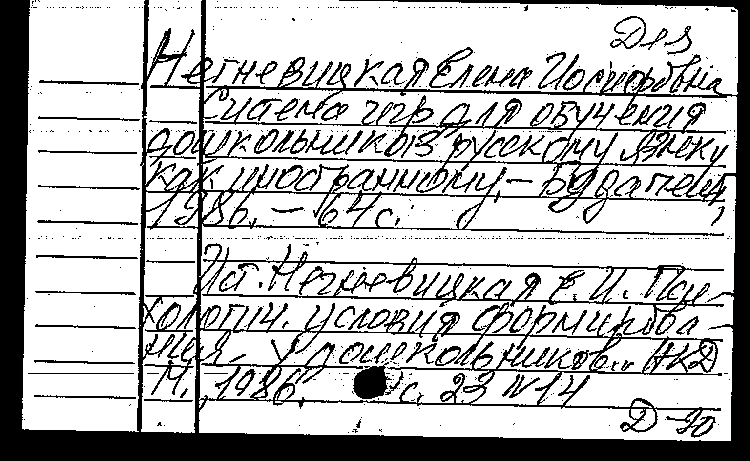 Негневицкая Елена Иосифовна
Система игр для обучения
дошкольников русскому языку
как иностранному. – Будапешт,
1986. – 64 с.
Ист. Негневицкая Е. И. Пси-
хологич. условия формирова-
ния у дошкольников.. АКД
М., 1986. с. 23 N 14
Д-90